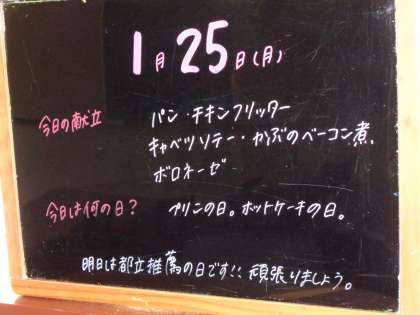 1月25日(月)
今日の献立 パン・チキンフリッター
キャベツソテー・かぶのベーコン煮、
ボロネーゼ
今日は何の日? プリンの日。ホットケーキの日。
明日は都立推薦の日です!!頑張りましょう。